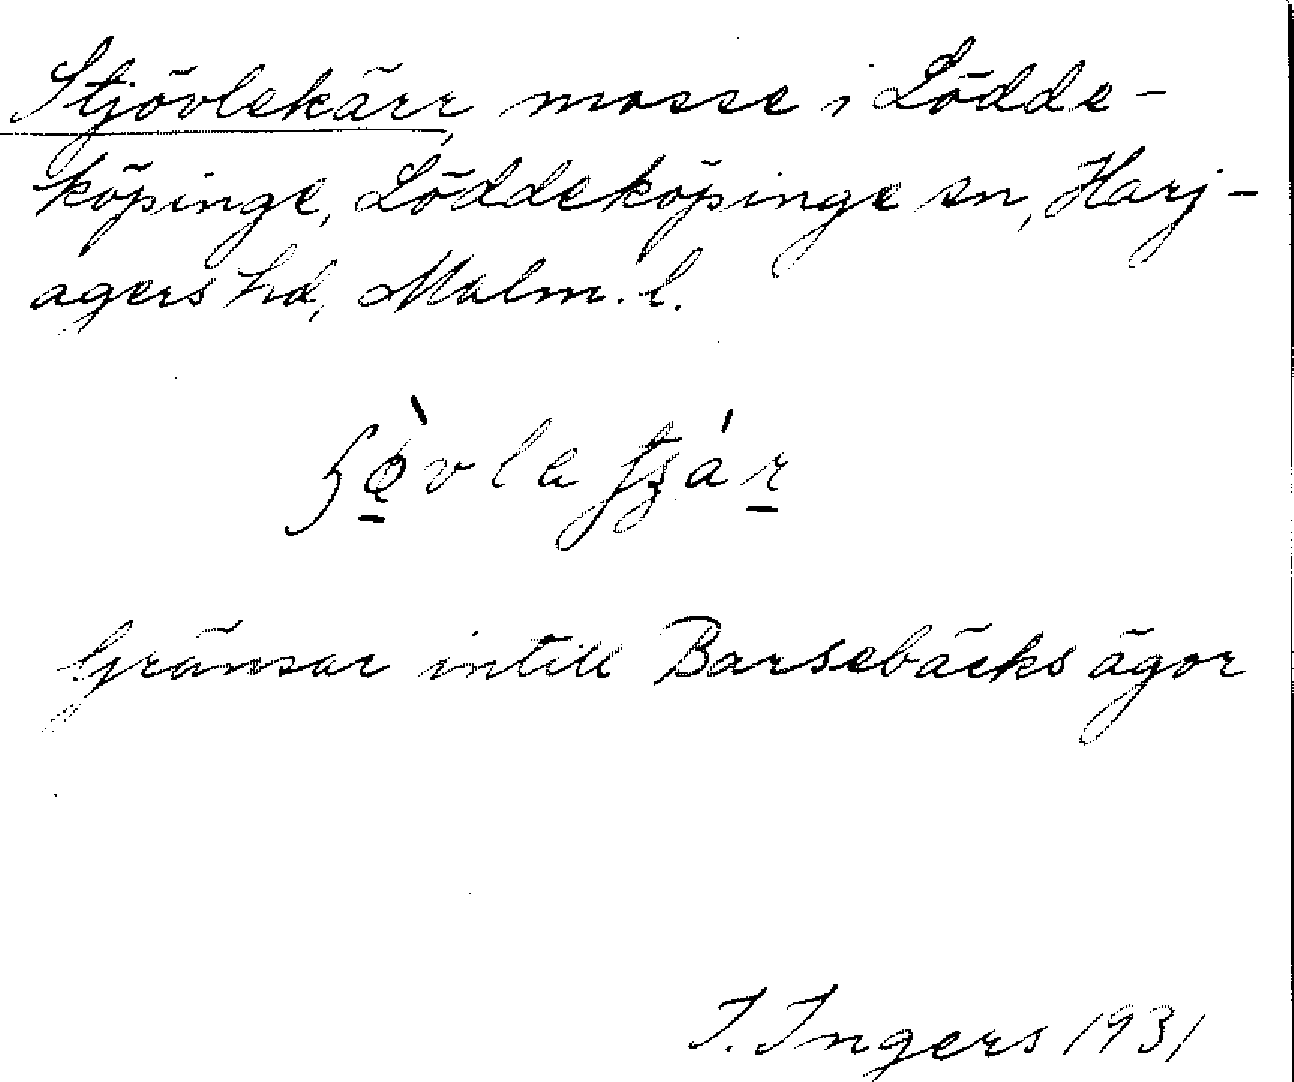 Stjövlekärr, mosse i Lödde-
köpinge, Löddeköpinge sn, Harj-
agers hd, Malm. l.
Gränsar intill Barsebäcks ägor
I. Ingers 1931